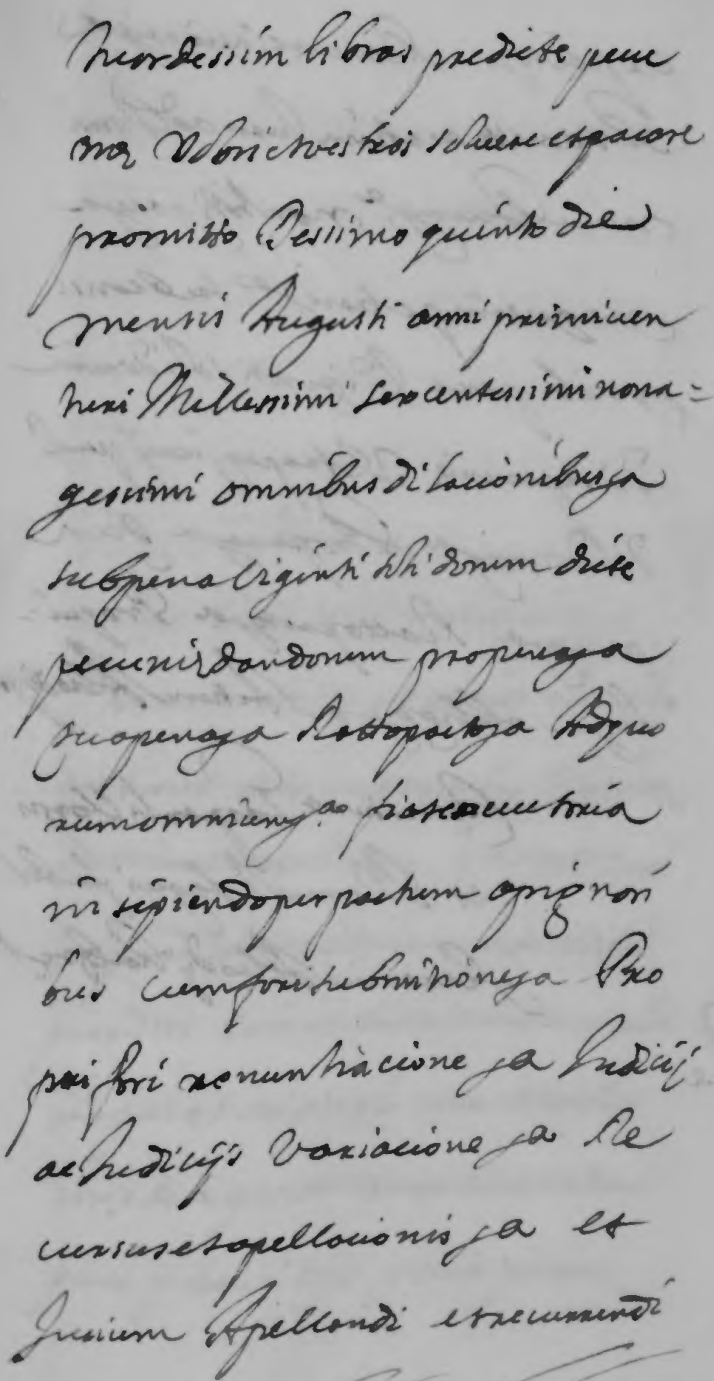 libras predicte pecu
niæ Vobis et vestris solvere et pacare
promitto Dessimo quinto die
mensis Augusti anni primi ven
turi Millessimi sexcentessimi nona=
gessimi omnibus dilacionibus ga
sub pena viginti solidorum dicte
pecuniæ dandorum pro pena ga
sua pena ga Ratto pacto ga Ad quo
rum omnium ga fiat executoria
insipiendo per partem a pignori
bus cum fori submitione ga Pro
prii fori renuntiacione ga Iudicij
ac Iudicijs Variacione ga Re
cursus et apellacionis ga et
Iurium Apellandi et recurrendi